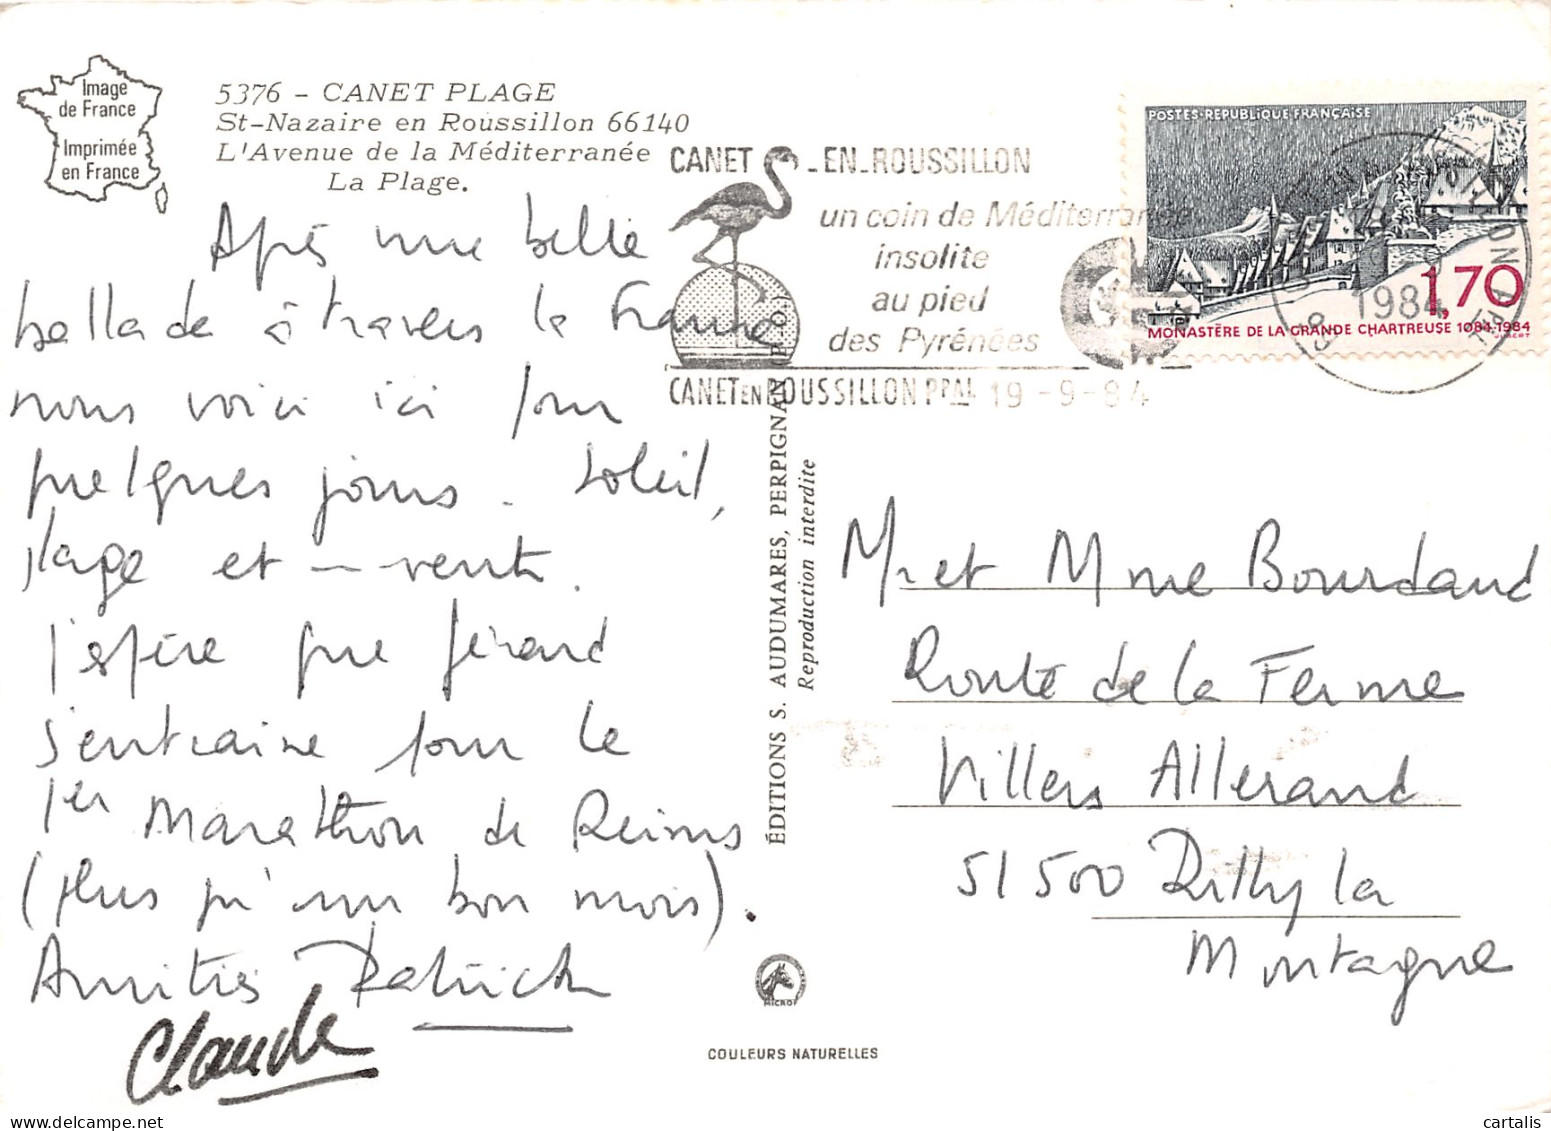 Image
de France
Imprimée
en France
5376 - CANET PLAGE
St-Nazaire en Roussillon 66140
L'Avenue de la Méditerranée
La Plage.
CANET -EN-ROUSSILLON
un coin de Méditerranée
insolite
au pied
des Pyrénées
CANET EN ROUSSILLON PPAL 19-9-84
POSTES-REPUBLIQUE FRANÇAISE
1,70
MONASTÈRE DE LA GRANDE CHARTREUSE 1084-1984
1984
Après une belle
ballade à travers la France
nous voici ici pour
quelques jours. Soleil,
plage et - vent.
J'espère que Gérard
s'entraine pour le
1er Marathon de Reims
(plus qu'un bon mois).
Amitiés Patrick
Claude
ÉDITIONS S. AUDUMARES, PERPIGNAN (P.O.)
Reproduction interdite
Mr et Mme Bourdaud
Route de la Ferme
Villers Allerand
51500 Rilly la
Montagne
COULEURS NATURELLES
cartalis